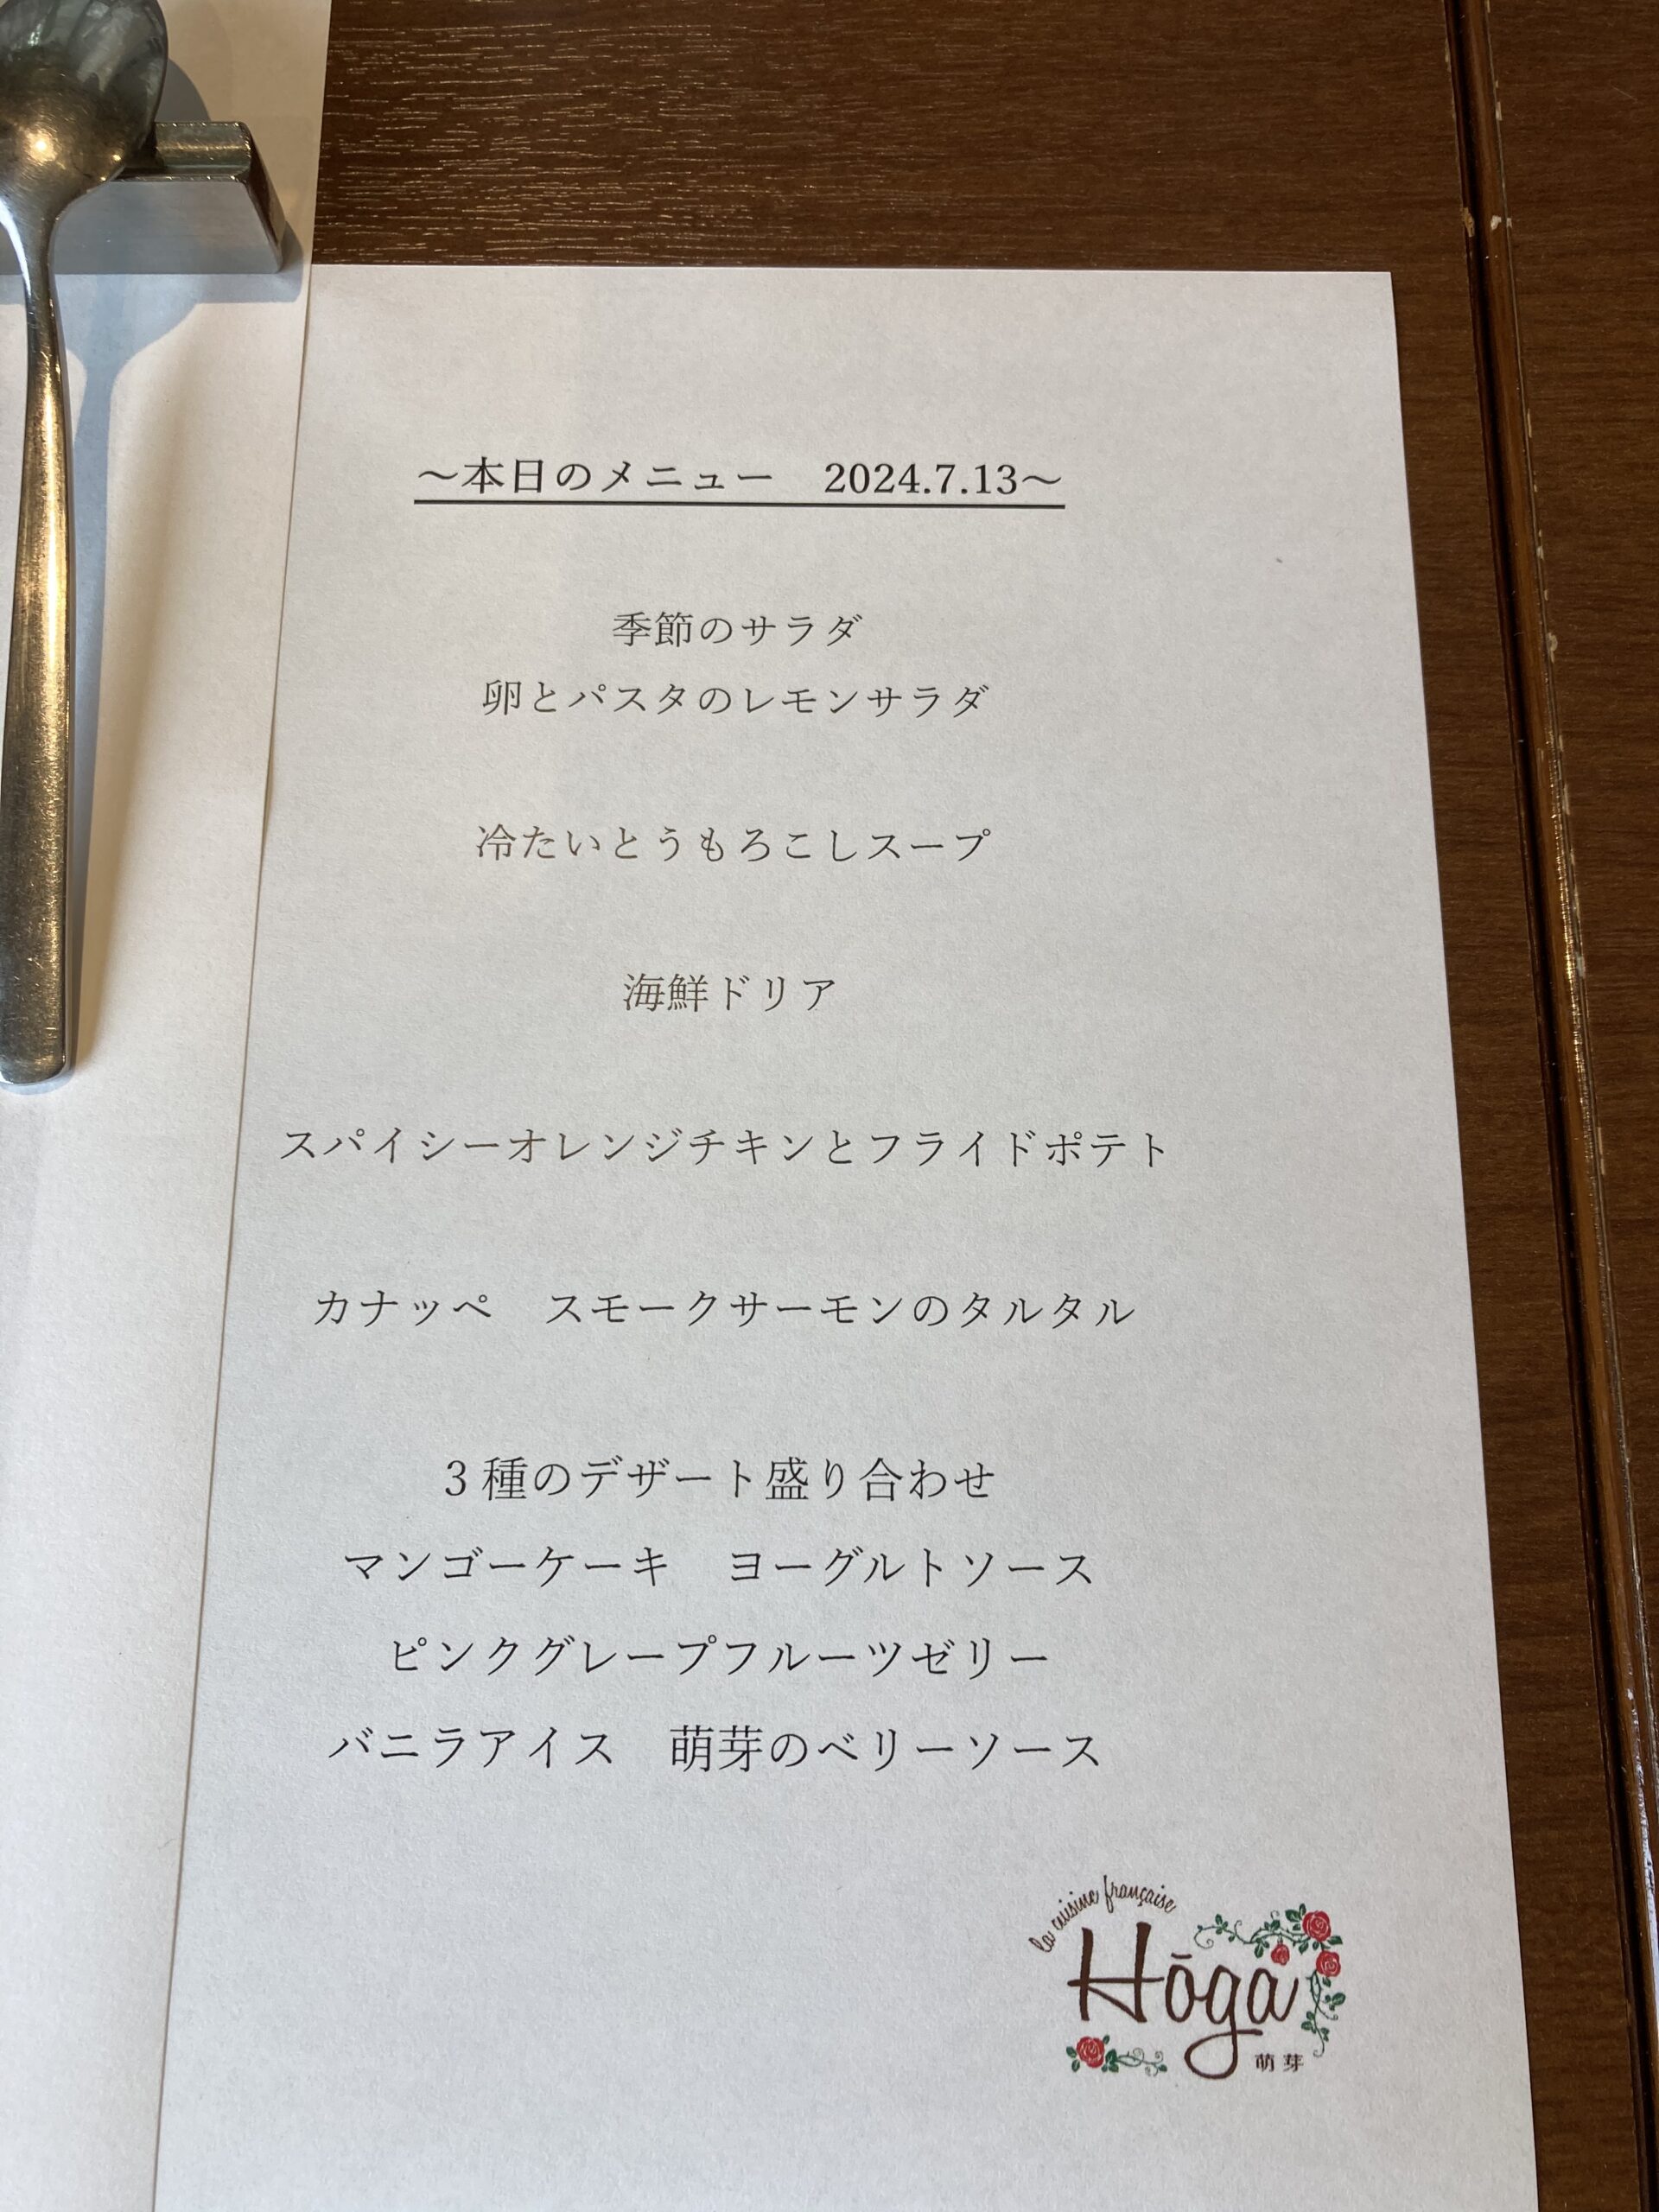 ～本日のメニュー　2024.7.13～
季節のサラダ
卵とパスタのレモンサラダ
冷たいとうもろこしスープ
海鮮ドリア
スパイシーオレンジチキンとフライドポテト
カナッペ　スモークサーモンのタルタル
3種のデザート盛り合わせ
マンゴーケーキ　ヨーグルトソース
ピンクグレープフルーツゼリー
バニラアイス　萌芽のベリーソース
la cuisine française
Hōga
萌芽